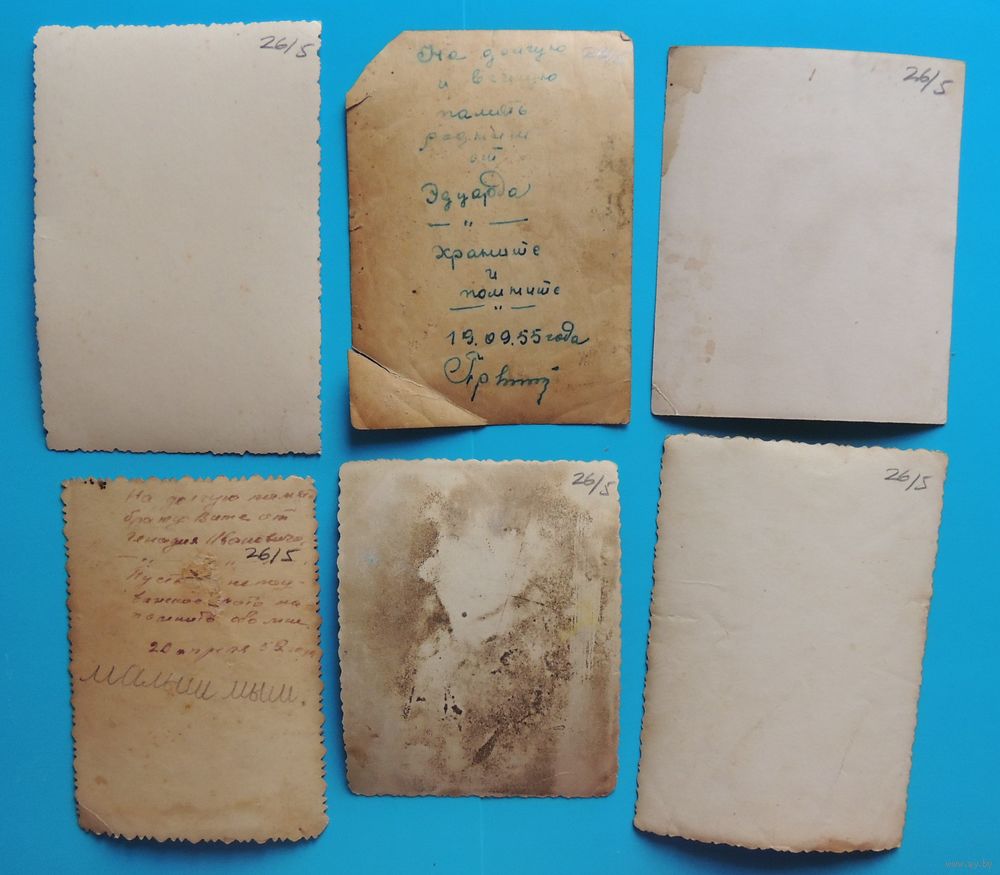 26/5
На долгую
и вечную
память
родным
от
Эдуарда
— " —
храните
и
помните
— " —
19.09.55 года
26/5
На долгую память
брату Вите от
Генадия Ивановича
26/5
Пусть
фото на-
помнит обо мне
20 апреля 52 года
26/5
26/5
www.ay.by